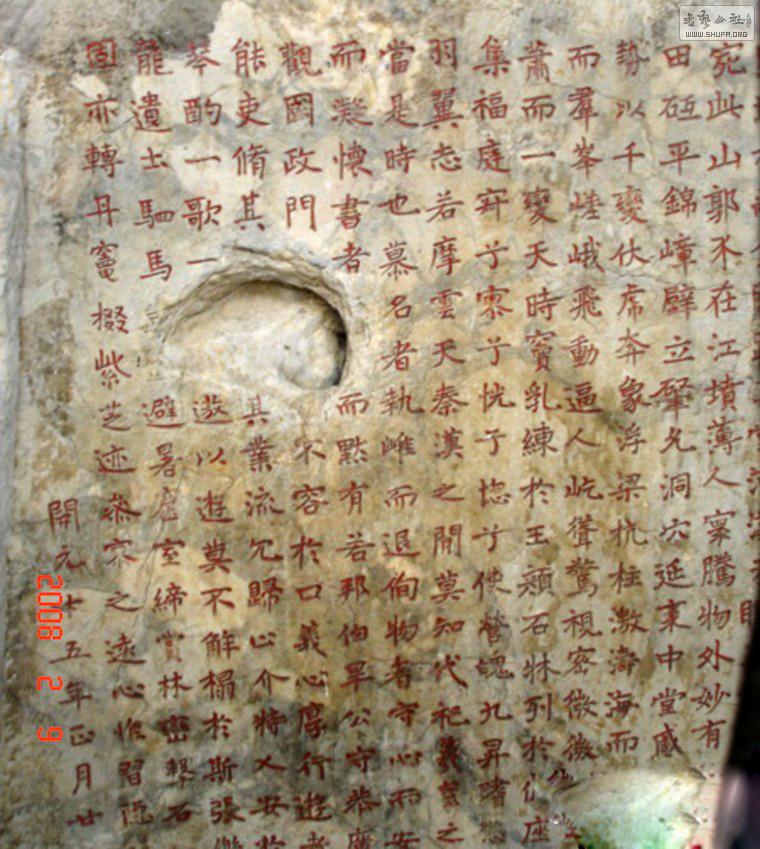 宛此山郭不在江墳薄人寰騰物外妙有
田砥平錦嶂壁立肇允洞穴延袤中堂
勢以千變伏虎奔象浮梁抗柱激濤海而
而羣峯嵯峨飛動逼人屹聳驚視密微微
蕭而一變天時竇乳練於玉顏石牀列於仙座
集福庭寂兮寥兮恍兮惚兮使營魄九昇嗜慾
羽翼志若摩雲天秦漢之開莫知代祀羲之
當是時也慕名者執雌而退徇物者守心而安
而凝懷書者而點有若邦伯畢公守恭
觀國政門不容於口義心厚行遊者
能吏脩其其業流冗歸心介特乂安於
琴酌一歌一遂以遊莫不解榻於斯張
龍遺士駟馬避暑虛室締賞林巒石
固亦轉丹竈掇紫芝迹參寥之遠心惟習隱
開元十五年正月廿
2008 2 9
公社
WWW.SHUFA.ORG